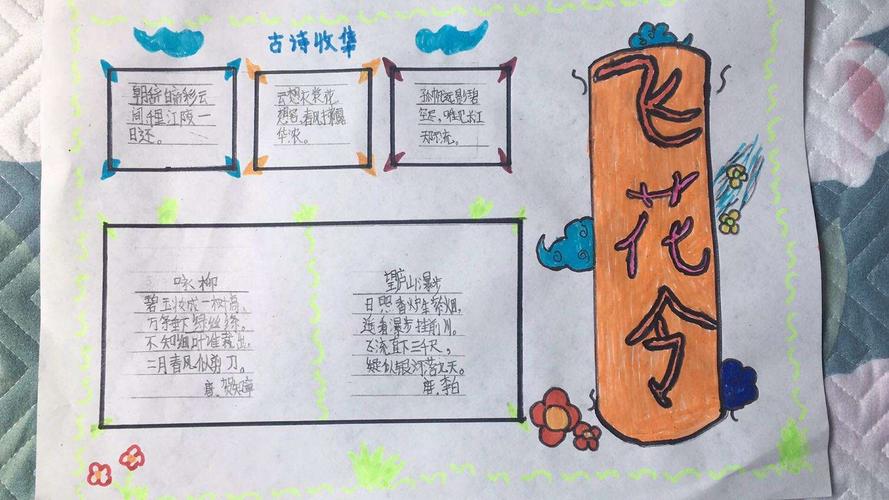 古诗收集
朝辞白帝彩云
间千里江陵一
日还。
云想衣裳花
想容,春风拂槛露
华浓。
孤帆远影碧
空尽,唯见长江
天际流。
飞花令
咏柳
碧玉妆成一树高,
万条垂下绿丝绦。
不知细叶谁裁出,
二月春风似剪刀。
唐.贺知章
望庐山瀑布
日照香炉生紫烟,
遥看瀑布挂前川。
飞流直下三千尺,
疑似银河落九天。
唐.李白